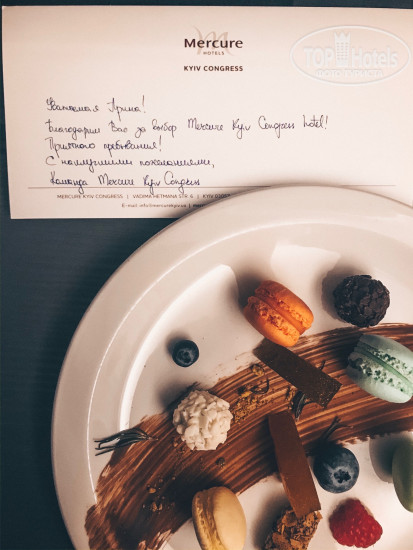 Mercure
HOTELS
KYIV CONGRESS
TOPHotels
Уважаемая Ирина!
Благодарим Вас за выбор Mercure Kyiv Congress hotel!
Приятного пребывания!
С наилучшими пожеланиями,
Команда Mercure Kyiv Congress
MERCURE KYIV CONGRESS | VADIMA HETMANA STR. 6 | KYIV
E-mail: